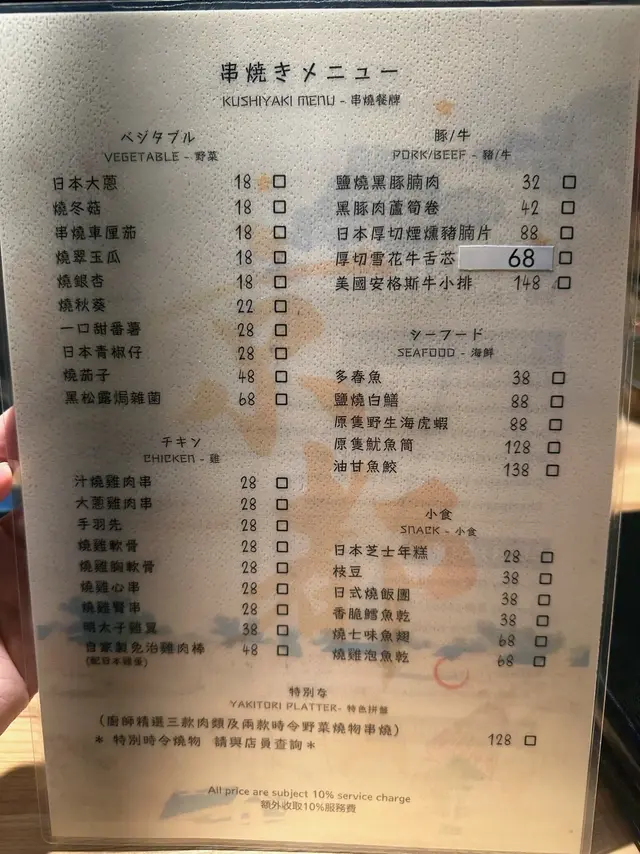 串焼きメニュー
KUSHIYAKI MENU - 串燒餐牌
ベジタブル
VEGETABLE - 野菜
日本大蔥 18
燒冬菇 18
串燒車厘茄 18
燒翠玉瓜 18
燒銀杏 18
燒秋葵 22
一口甜番薯 28
日本青椒仔 28
燒茄子 48
黑松露焗雜菌 68
チキン
CHICKEN - 雞
汁燒雞肉串 28
大蔥雞肉串 28
手羽先 28
燒雞軟骨 28
燒雞胸軟骨 28
燒雞心串 28
燒雞腎串 28
明太子雞翼 38
自家製免治雞肉棒 48
(配日本雞蛋)
豚/牛
PORK/BEEF - 豬/牛
鹽燒黑豚腩肉 32
黑豚肉蘆筍卷 42
日本厚切煙燻豬腩片 88
厚切雪花牛舌芯 68
美國安格斯牛小排 148
シーフード
SEAFOOD - 海鮮
多春魚 38
鹽燒白鱔 88
原隻野生海虎蝦 88
原隻魷魚筒 128
油甘魚鮫 138
小食
SNACK - 小食
日本芝士年糕 28
枝豆 38
日式燒飯團 38
香脆鱈魚乾 38
燒七味魚翅 68
燒雞泡魚乾 68
特別な
YAKITORI PLATTER- 特色拼盤
(廚師精選三款肉類及兩款時令野菜燒物串燒)
* 特別時令燒物 請與店員查詢 * 128
All price are subject 10% service charge
額外收取10%服務費